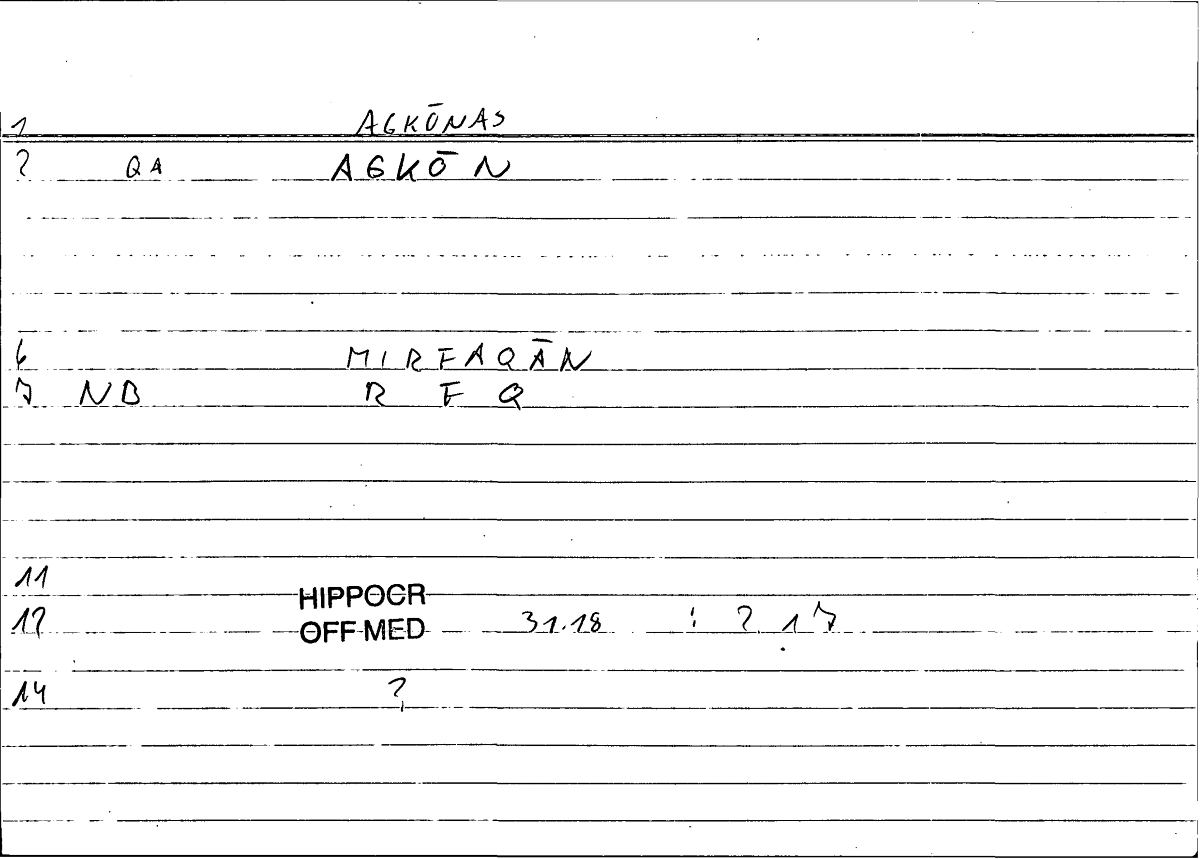 1 AGKŌNAS
2 QA AGKŌN
6 MIRFAQĀN
7 NB R F Q
11 HIPPOCR
12 OFF MED 31.18 : 2 17
14 ?